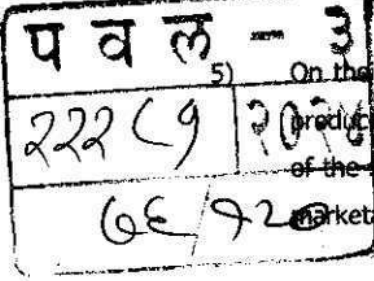 प व ल - ३
5) On the
२२२८१ २०२४ produc
of the
७६/१२० market